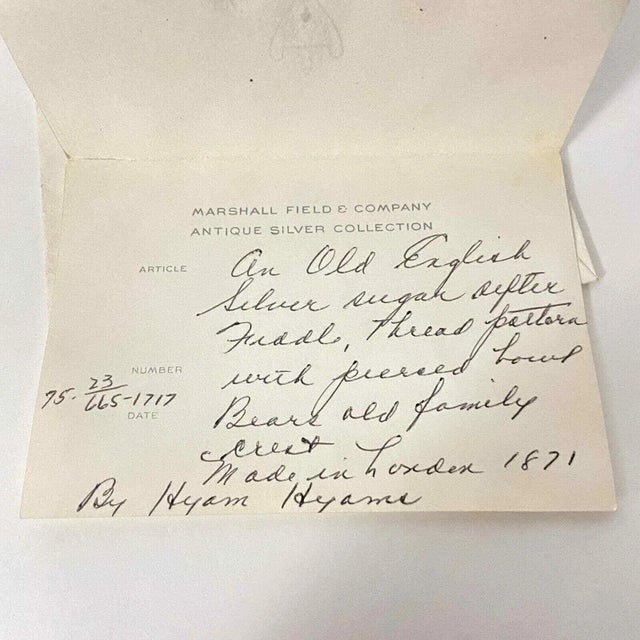 MARSHALL FIELD & COMPANY
ANTIQUE SILVER COLLECTION
ARTICLE An Old English
Silver sugar sifter
Fiddle, Thread pattern
NUMBER with pierced bowl
75. 23/665-1717
DATE Bears old family
crest
Made in London 1871
By Hyam Hyams